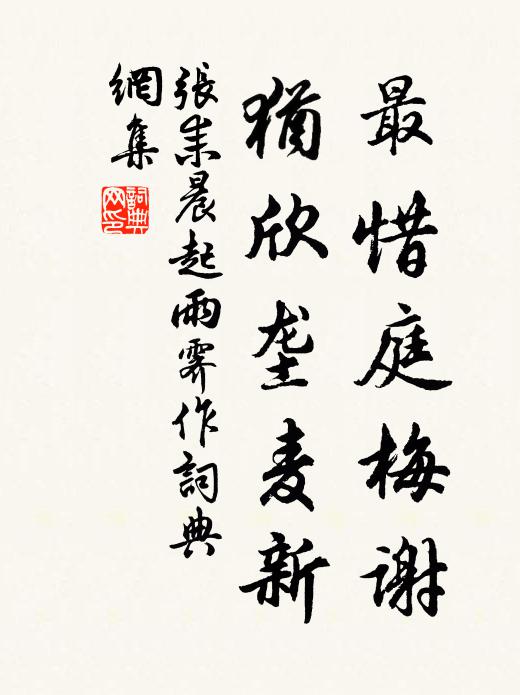 最惜庭梅谢
猶欣垄麦新
張耒晨起雨霽作詞典
網集
詞典
网印